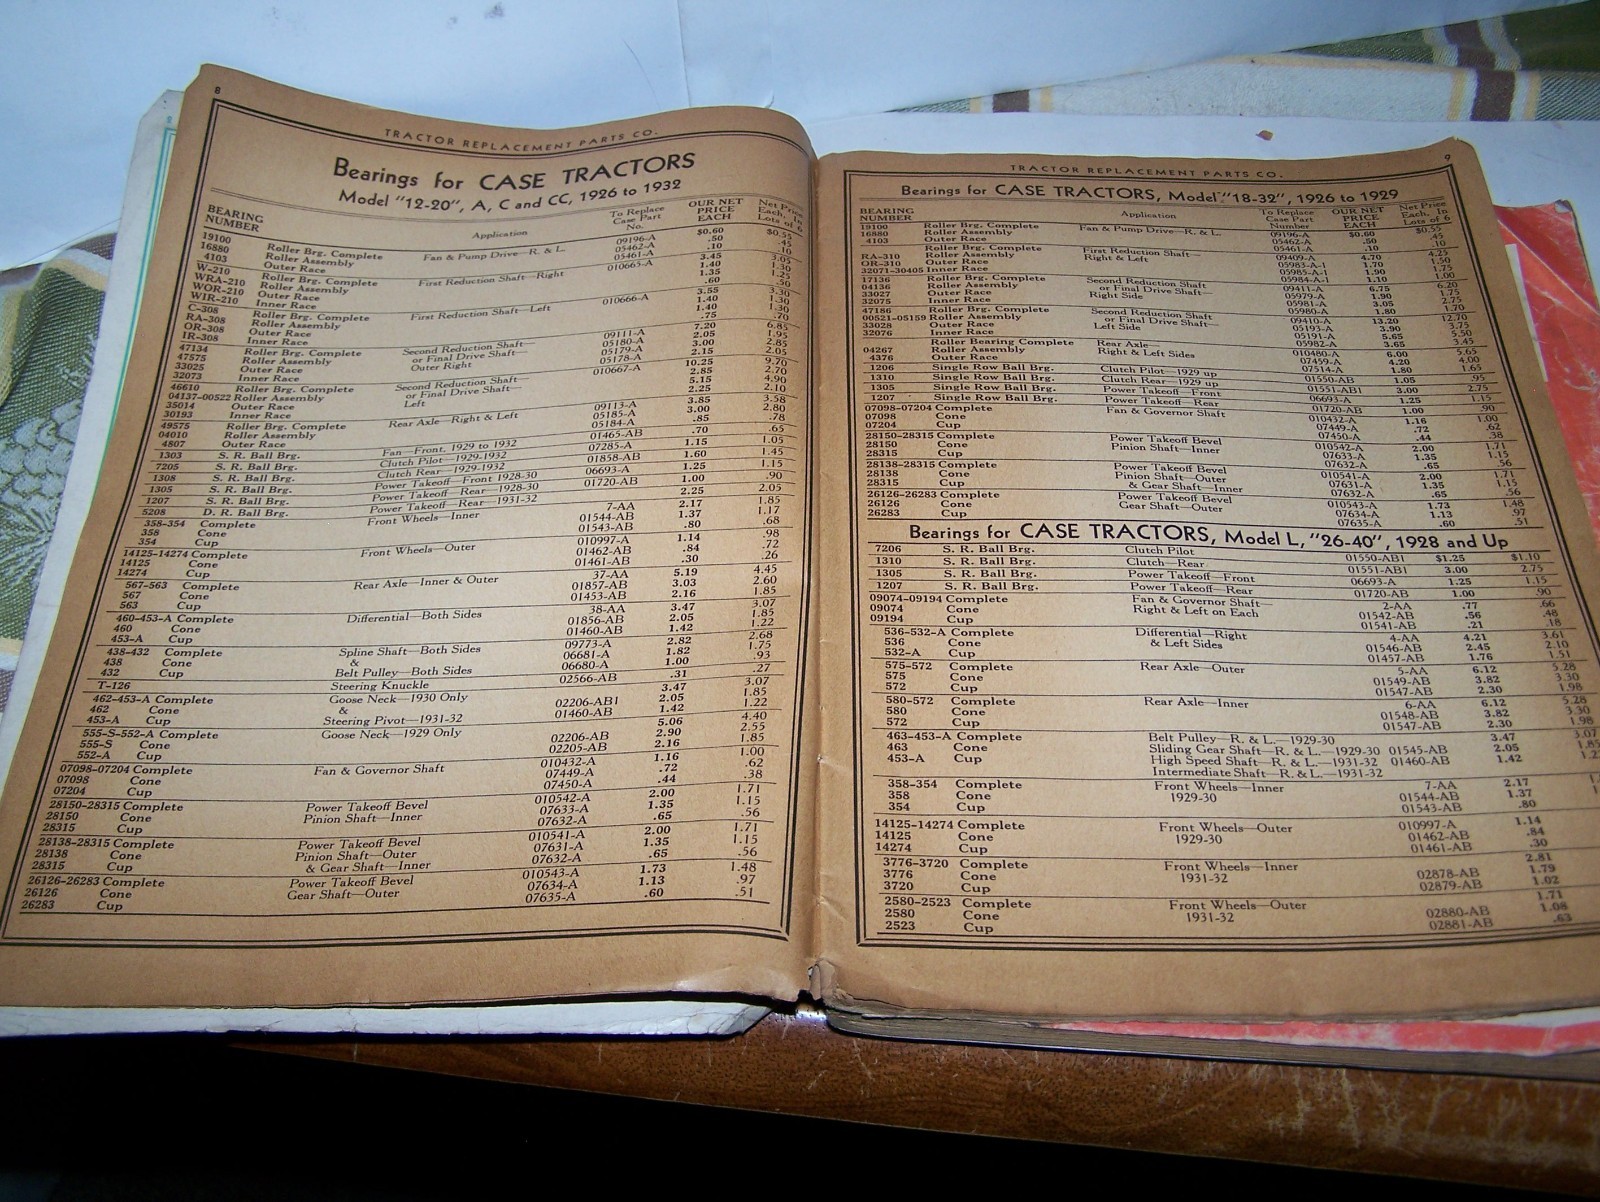 8
TRACTOR REPLACEMENT PARTS CO.
Bearings for CASE TRACTORS
Model "12-20", A, C and CC, 1926 to 1932
BEARING NUMBER Application To Replace Case Part No. OUR NET PRICE EACH Net Price Each, In Lots of 6
19100 Roller Brg. Complete Fan & Pump Drive—R. & L. 09196-A $0.60 $0.55
16880 Roller Assembly 05462-A .50 .45
4103 Outer Race 05461-A .10 .10
W-210 Roller Brg. Complete First Reduction Shaft—Right 010665-A 3.45 3.05
WRA-210 Roller Assembly 1.40 1.30
WOR-210 Outer Race 1.35 1.25
WIR-210 Inner Race .60 .50
C-308 Roller Brg. Complete First Reduction Shaft—Left 010666-A 3.55 3.30
RA-308 Roller Assembly 1.40 1.30
OR-308 Outer Race 1.40 1.30
IR-308 Inner Race .75 .70
47134 Roller Brg. Complete Second Reduction Shaft— 09111-A 7.20 6.85
47575 Roller Assembly or Final Drive Shaft— 05180-A 2.05 1.95
33025 Outer Race Outer Right 05179-A 3.00 2.85
32073 Inner Race 05178-A 2.15 2.05
46610 Roller Brg. Complete Second Reduction Shaft— 010667-A 10.25 9.70
04137-00522 Roller Assembly or Final Drive Shaft— 2.85 2.70
35014 Outer Race Left 5.15 4.90
30193 Inner Race 2.25 2.10
49575 Roller Brg. Complete Rear Axle—Right & Left 09113-A 3.85 3.58
04010 Roller Assembly 05185-A 3.00 2.80
4807 Outer Race 05184-A .85 .78
1303 S. R. Ball Brg. Fan—Front, 1929 to 1932 01465-AB .70 .65
7205 S. R. Ball Brg. Clutch Pilot—1929-1932 07285-A 1.15 1.05
1308 S. R. Ball Brg. Clutch Rear—1929-1932 01858-AB 1.60 1.45
1305 S. R. Ball Brg. Power Takeoff—Front 1928-30 06693-A 1.25 1.15
1207 S. R. Ball Brg. Power Takeoff—Rear—1928-30 01720-AB 1.00 .90
5208 D. R. Ball Brg. Power Takeoff—Rear—1931-32 2.25 2.05
358-354 Complete Front Wheels—Inner 7-AA 2.17 1.85
358 Cone 01544-AB 1.37 1.17
354 Cup 01543-AB .80 .68
14125-14274 Complete Front Wheels—Outer 010997-A 1.14 .98
14125 Cone 01462-AB .84 .72
14274 Cup 01461-AB .30 .26
567-563 Complete Rear Axle—Inner & Outer 37-AA 5.19 4.45
567 Cone 01857-AB 3.03 2.60
563 Cup 01453-AB 2.16 1.85
460-453-A Complete Differential—Both Sides 38-AA 3.47 3.07
460 Cone 01856-AB 2.05 1.85
453-A Cup 01460-AB 1.42 1.22
438-432 Complete Spline Shaft—Both Sides 09773-A 2.82 2.68
438 Cone & 06681-A 1.82 1.75
432 Cup Belt Pulley—Both Sides 06680-A 1.00 .93
T-126 Steering Knuckle 02566-AB .31 .27
462-453-A Complete Goose Neck—1930 Only 3.47 3.07
462 Cone & 02206-AB1 2.05 1.85
453-A Cup Steering Pivot—1931-32 01460-AB 1.42 1.22
555-S-552-A Complete Goose Neck—1929 Only 5.06 4.40
555-S Cone 02206-AB 2.90 2.55
552-A Cup 02205-AB 2.16 1.85
07098-07204 Complete Fan & Governor Shaft 010432-A 1.16 1.00
07098 Cone 07449-A .72 .62
07204 Cup 07450-A .44 .38
28150-28315 Complete Power Takeoff Bevel 010542-A 2.00 1.71
28150 Cone Pinion Shaft—Inner 07633-A 1.35 1.15
28315 Cup 07632-A .65 .56
28138-28315 Complete Power Takeoff Bevel 010541-A 2.00 1.71
28138 Cone Pinion Shaft—Outer 07631-A 1.35 1.15
28315 Cup & Gear Shaft—Inner 07632-A .65 .56
26126-26283 Complete Power Takeoff Bevel 010543-A 1.73 1.48
26126 Cone Gear Shaft—Outer 07634-A 1.13 .97
26283 Cup 07635-A .60 .51
9
TRACTOR REPLACEMENT PARTS CO.
Bearings for CASE TRACTORS, Model "18-32", 1926 to 1929
BEARING NUMBER Application To Replace Case Part Number OUR NET PRICE EACH Net Price Each, In Lots of 6
19100 Roller Brg. Complete Fan & Pump Drive—R. & L. 09196-A $0.60 $0.55
16880 Roller Assembly 05462-A .50 .45
4103 Outer Race 05461-A .10 .10
Roller Brg. Complete First Reduction Shaft— 09409-A 4.70 4.25
RA-310 Roller Assembly Right & Left 05983-A-1 1.70 1.50
OR-310 Outer Race 05985-A-1 1.90 1.75
32071-30405 Inner Race 05984-A-1 1.10 1.00
17136 Roller Brg. Complete Second Reduction Shaft 09411-A 6.75 6.20
04136 Roller Assembly or Final Drive Shaft— 05979-A 1.90 1.75
33027 Outer Race Right Side 05981-A 3.05 2.75
32075 Inner Race 05980-A 1.80 1.70
47186 Roller Brg. Complete Second Reduction Shaft 09410-A 13.20 12.70
00521-05159 Roller Assembly or Final Drive Shaft— 05193-A 3.90 3.75
33028 Outer Race Left Side 05191-A 5.65 5.50
32076 Inner Race 05982-A 3.65 3.45
Roller Bearing Complete Rear Axle— 010480-A 6.00 5.65
04267 Roller Assembly Right & Left Sides 07459-A 4.20 4.00
4376 Outer Race 07514-A 1.80 1.65
1206 Single Row Ball Brg. Clutch Pilot—1929 up 01550-AB 1.05 .95
1310 Single Row Ball Brg. Clutch Rear—1929 up 01551-AB1 3.00 2.75
1305 Single Row Ball Brg. Power Takeoff—Front 06693-A 1.25 1.15
1207 Single Row Ball Brg. Power Takeoff—Rear 01720-AB 1.00 .90
07098-07204 Complete Fan & Governor Shaft 010432-A 1.16 1.00
07098 Cone 07449-A .72 .62
07204 Cup 07450-A .44 .38
28150-28315 Complete Power Takeoff Bevel 010542-A 2.00 1.71
28150 Cone Pinion Shaft—Inner 07633-A 1.35 1.15
28315 Cup 07632-A .65 .56
28138-28315 Complete Power Takeoff Bevel 010541-A 2.00 1.71
28138 Cone Pinion Shaft—Outer 07631-A 1.35 1.15
28315 Cup & Gear Shaft—Inner 07632-A .65 .56
26126-26283 Complete Power Takeoff Bevel 010543-A 1.73 1.48
26126 Cone Gear Shaft—Outer 07634-A 1.13 .97
26283 Cup 07635-A .60 .51
Bearings for CASE TRACTORS, Model L, "26-40", 1928 and Up
7206 S. R. Ball Brg. Clutch Pilot 01550-AB1 $1.25 $1.10
1310 S. R. Ball Brg. Clutch—Rear 01551-AB1 3.00 2.75
1305 S. R. Ball Brg. Power Takeoff—Front 06693-A 1.25 1.15
1207 S. R. Ball Brg. Power Takeoff—Rear 01720-AB 1.00 .90
09074-09194 Complete Fan & Governor Shaft— 2-AA .77 .66
09074 Cone Right & Left on Each 01542-AB .56 .48
09194 Cup 01541-AB .21 .18
536-532-A Complete Differential—Right 4-AA 4.21 3.61
536 Cone & Left Sides 01546-AB 2.45 2.10
532-A Cup 01457-AB 1.76 1.51
575-572 Complete Rear Axle—Outer 5-AA 6.12 5.28
575 Cone 01549-AB 3.82 3.30
572 Cup 01547-AB 2.30 1.98
580-572 Complete Rear Axle—Inner 6-AA 6.12 5.28
580 Cone 01548-AB 3.82 3.30
572 Cup 01547-AB 2.30 1.98
463-453-A Complete Belt Pulley—R. & L.—1929-30 3.47 3.07
463 Cone Sliding Gear Shaft—R. & L.—1929-30 01545-AB 2.05 1.85
453-A Cup High Speed Shaft—R. & L.—1931-32 01460-AB 1.42
Intermediate Shaft—R. & L.—1931-32
358-354 Complete Front Wheels—Inner 7-AA 2.17
358 Cone 1929-30 01544-AB 1.37
354 Cup 01543-AB .80
14125-14274 Complete Front Wheels—Outer 010997-A 1.14
14125 Cone 1929-30 01462-AB .84
14274 Cup 01461-AB .30
3776-3720 Complete Front Wheels—Inner 2.81
3776 Cone 1931-32 02878-AB 1.79
3720 Cup 02879-AB 1.02
2580-2523 Complete Front Wheels—Outer 1.71
2580 Cone 1931-32 02880-AB 1.08
2523 Cup 02881-AB .63